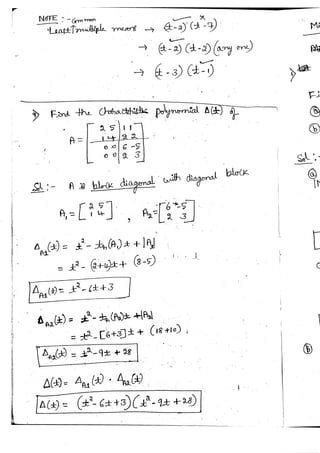 NOTE : - Common
Least multiple means → (t-2)(t-7) ×
→ (t-2)(t-2) (any one)
→ (t-3)(t-1)
Find the Characteristic polynomial Δ(t) of
A = [ 2 5 1 1
1 4 2 2
0 0 6 -5
0 0 2 3 ]
Sol :- A is block diagonal with diagonal block
A₁ = [ 2 5
1 4 ] , A₂ = [ 6 -5
2 3 ]
Δ_A₁(t) = t² - tr(A₁)t + |A₁|
= t² - (2+4)t + (8-5)
Δ_A₁(t) = t² - 6t + 3
Δ_A₂(t) = t² - tr(A₂)t + |A₂|
= t² - [6+3]t + (18+10)
Δ_A₂(t) = t² - 9t + 28
Δ(t) = Δ_A₁(t) · Δ_A₂(t)
Δ(t) = (t² - 6t + 3)(t² - 9t + 28)
Sol :-
(a)
(b)